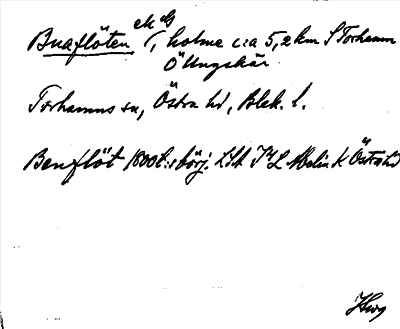 Buaflöten ek G
(, holme c:a 5,2 km S Torhamn
Ö Ungskär
Torhamns sn, Östra hd, Blek. l.
Benflöt 1800t:s börj. LSA Melin K Östra hd